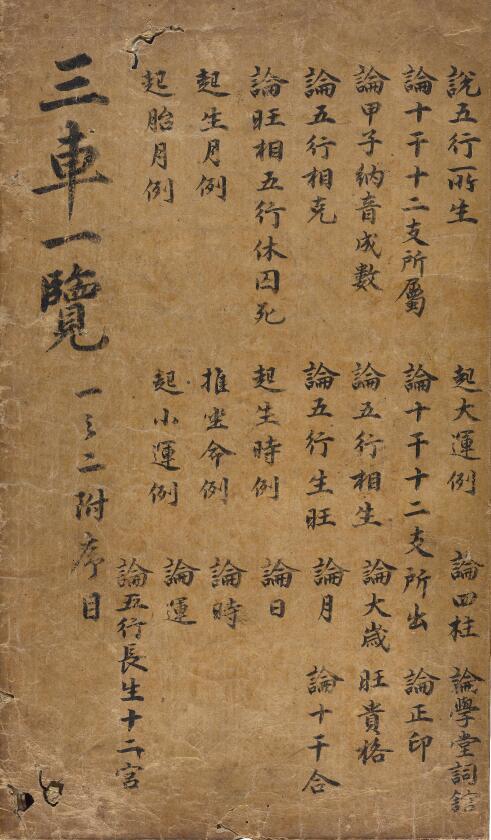 說五行所生　起大運例　論四柱　論學堂詞舘
論十干十二支所屬　論十干十二支所出　論正印
論甲子納音成數　論五行相生　論大歲　旺貴格
論五行相克　論五行生旺　論月　論十干合
論旺相五行休囚死　起生時例　論日
起生月例　推坐命例　論時
起胎月例　起小運例　論運
論五行長生十二宮
三車一覽　一之二附序目